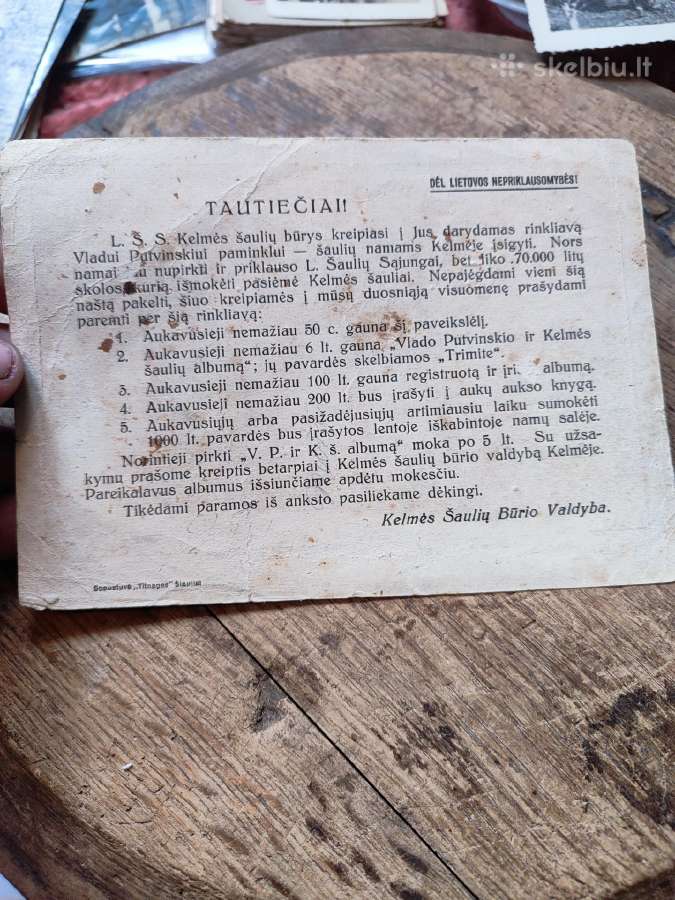 skelbiu.lt
DĖL LIETUVOS NEPRIKLAUSOMYBĖS!
TAUTIEČIAI!
L. Š. S. Kelmės šaulių būrys kreipiasi į Jus darydamas rinkliavą
Vladui Putvinskiui paminklui — šaulių namams Kelmėje įsigyti. Nors
namai nupirkti ir priklauso L. Šaulių Sąjungai, bet liko 70.000 litų
skolos, kurią išmokėti pasiėmė Kelmės šauliai. Nepajėgdami vieni šią
naštą pakelti, šiuo kreipiamės į mūsų duosniąją visuomenę prašydami
paremti per šią rinkliavą:
1. Aukavusieji nemažiau 50 c. gauna šį paveikslėlį.
2. Aukavusieji nemažiau 6 lt. gauna „Vlado Putvinskio ir Kelmės
šaulių albumą“; jų pavardės skelbiamos „Trimite“.
3. Aukavusieji nemažiau 100 lt. gauna registruotą ir įri. albumą.
4. Aukavusieji nemažiau 200 lt. bus įrašyti į aukų aukso knygą.
5. Aukavusiųjų arba pasižadėjusiųjų artimiausiu laiku sumokėti
1000 lt. pavardės bus įrašytos lentoje iškabintoje namų salėje.
Norintieji pirkti „V. P. ir K. š. albumą“ moka po 5 lt. Su užsa-
kymu prašome kreiptis betarpiai į Kelmės šaulių būrio valdybą Kelmėje.
Pareikalavus albumus išsiunčiame apdėtu mokesčiu.
Tikėdami paramos iš anksto pasiliekame dėkingi.
Kelmės Šaulių Būrio Valdyba.
Spaustuvė „Titnagas“ Šiauliai